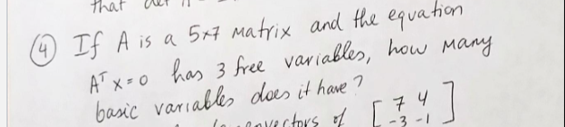 that
(4) If A is a 5x7 matrix and the equation
Aᵀx=0 has 3 free variables, how many
basic variables does it have?
of [ 7 4
-3 -1 ]